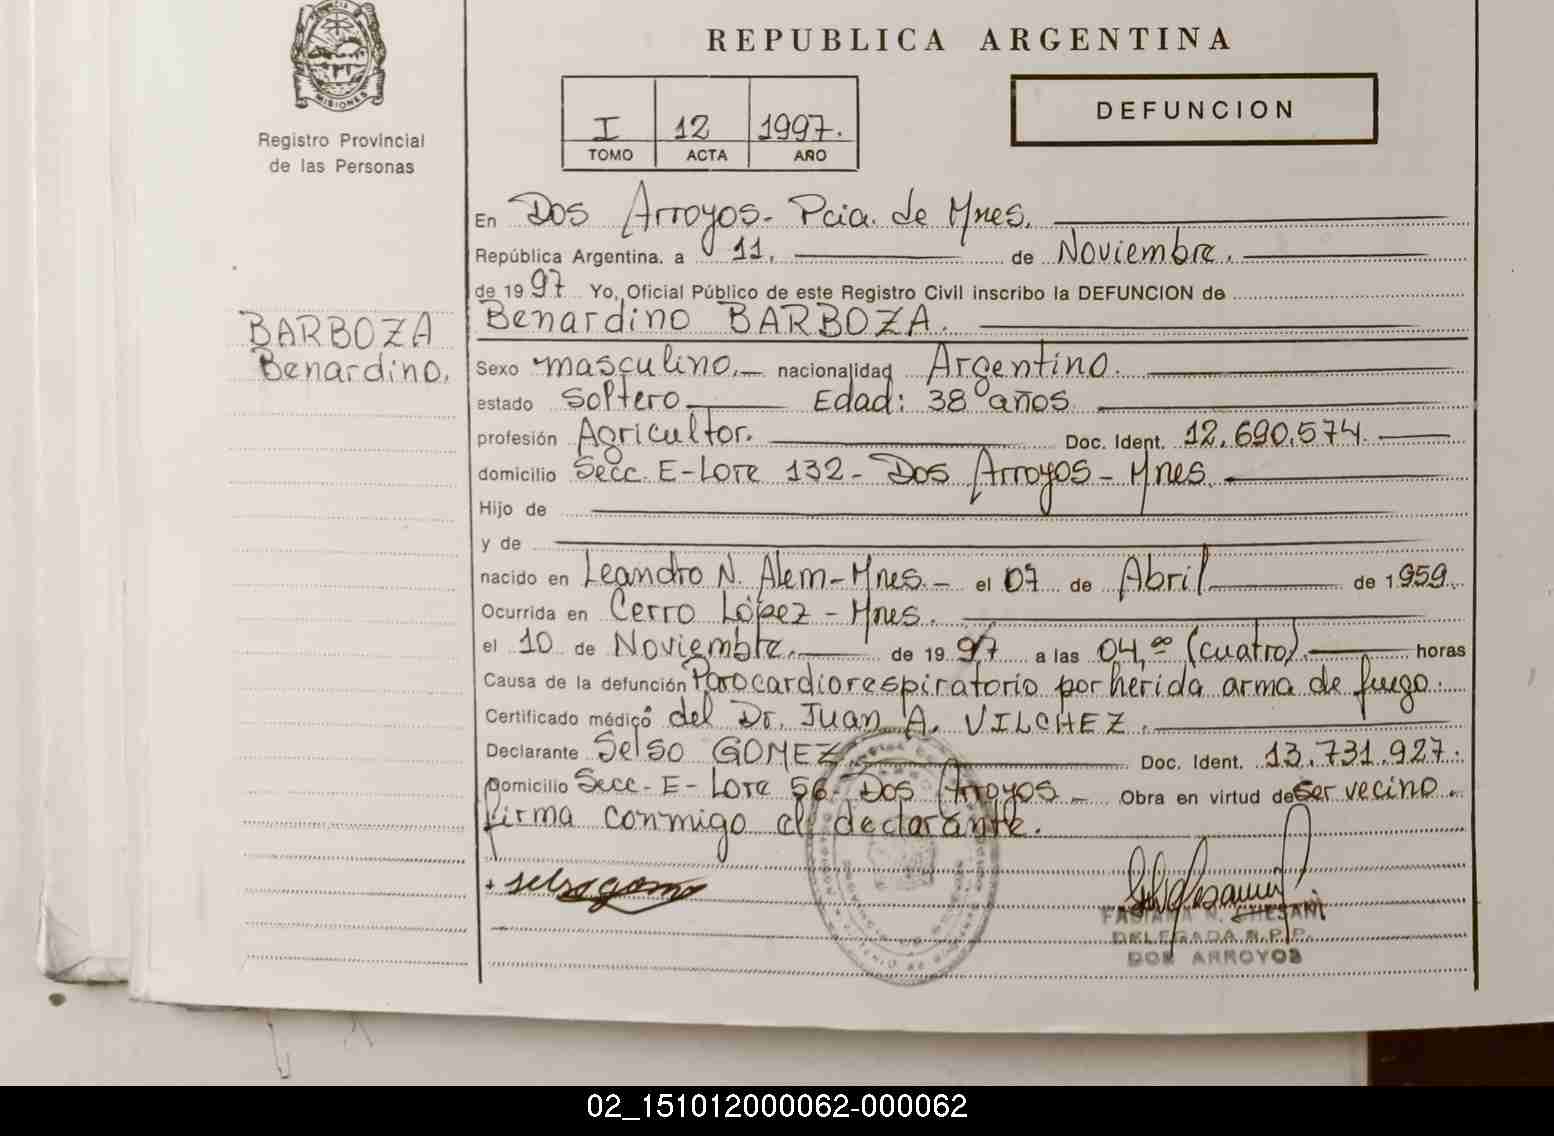 MISIONES
Registro Provincial
de las Personas
REPUBLICA ARGENTINA
I 12 1997.
TOMO ACTA AÑO
DEFUNCION
En Dos Arroyos - Pcia. de Mnes.
República Argentina, a 11. de Noviembre.
de 1997 Yo, Oficial Público de este Registro Civil inscribo la DEFUNCION de
BARBOZA
Benardino.
Benardino BARBOZA.
Sexo masculino. nacionalidad Argentino.
estado soltero Edad: 38 años
profesión Agricultor. Doc. Ident. 12.690.574.
domicilio Secc. E-Lote 132 - Dos Arroyos - Mnes.
Hijo de
y de
nacido en Leandro N. Alem - Mnes. el 07 de Abril de 1.959.
Ocurrida en Cerro López - Mnes.
el 10 de Noviembre. de 1997 a las 04,00 (cuatro). horas
Causa de la defunción Parocardiorespiratorio por herida arma de fuego.
Certificado médico del Dr. Juan A. VILCHEZ.
Declarante Selso GOMEZ Doc. Ident. 13.731.927.
Domicilio Secc. E - Lote 56 - Dos Arroyos - Obra en virtud de ser vecino.
firma conmigo el declarante.
selso gomez
FABIANA N.
DELEGADA R.P.P.
DOS ARROYOS
02_151012000062-000062